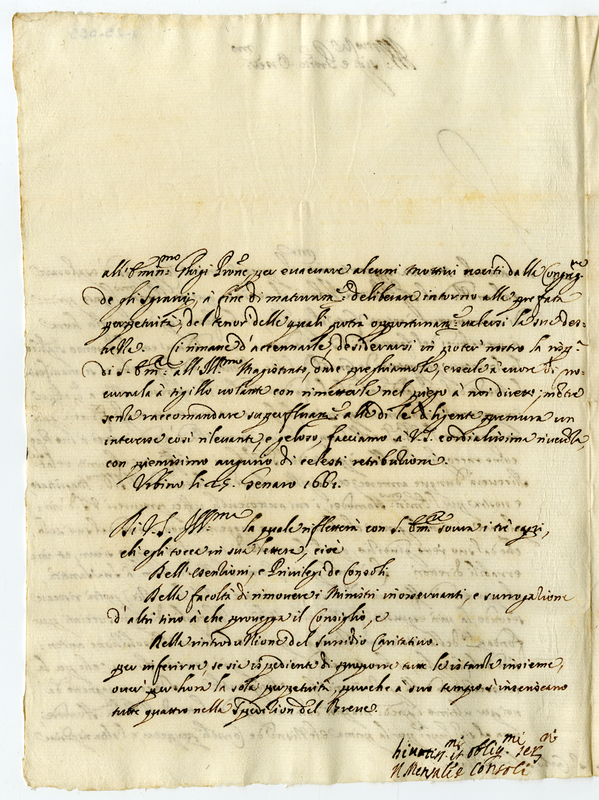 all'Em.mo Ghigi Prone, per evacuare alcuni motivi usciti dalla Congreg.ne
de gli Sgravij, à fine di maturam.te deliberare intorno alla prefata
perpetuità, del tenor delle quali potrà opportunam.te valersi la sua des-
trezza. Ci rimane d'accennarle, desiderarsi in poter nostro la
di S. Em.za all'Ill.mo Magistrato, onde preghiamola, esserle à cuore di pro-
curarla à sigillo volante con rimetterla nel piego à noi diretto;
senza raccomandare superfluam.te alla di lei diligente premura un
interesse così rilevante, e geloso, facciamo à V.S. cordialissima riverenza,
con pienissimo augurio di celesti retributioni.
Urbino li Genaro 1661.
Di V.S. Ill.ma la quale rifletterà con S. Em.za sovra i trè capi,
ch'egli tocca in sua lettera, cioè
Dell'esentioni, e Privilegi de Consoli.
Della facoltà di rimovere i Ministri inosservanti, e surrogatione
d'altri sino à che provegga il Consiglio, e
Della rintroduttione del sussidio Caritativo.
per inferirne, se sia espediente di proporre tutte le istanze insieme,
over per hora la sola perpetuità, purche à suo tempo s'includano
tutte quattro nella Spedition del Breve.
et oblig.mi Ser.ri
Consoli